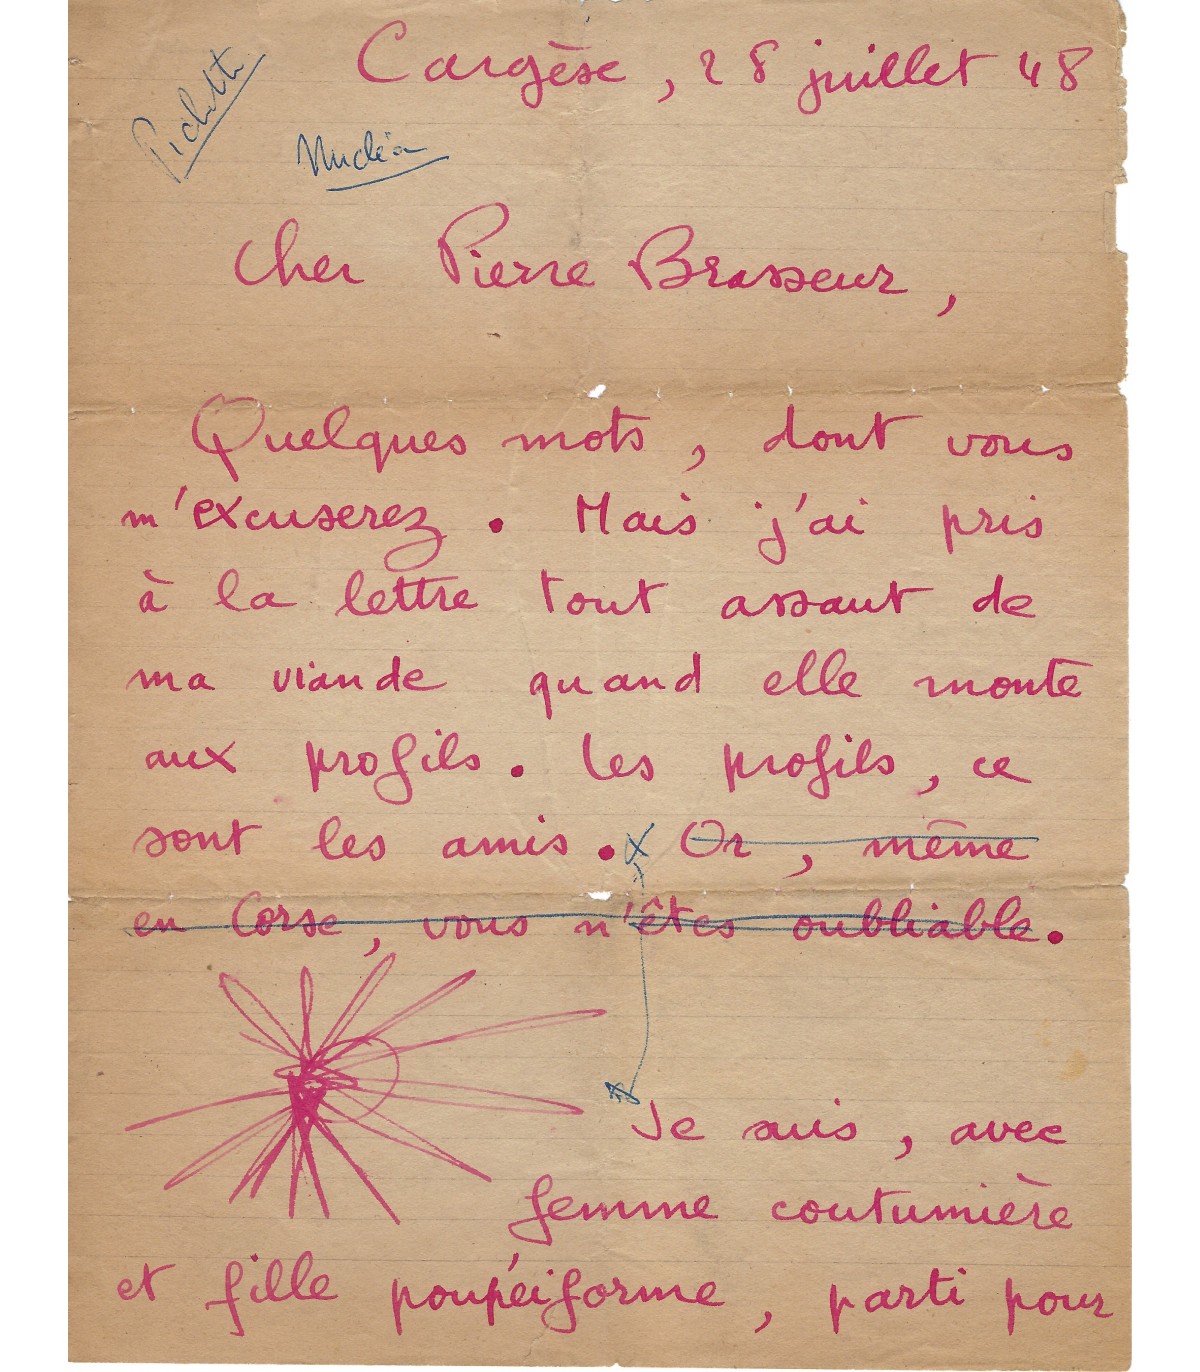 Cargèse, 28 juillet 48
Pichette
Nucléa
Cher Pierre Brasseur,
Quelques mots, dont vous
m'excuserez. Mais j'ai pris
à la lettre tout assaut de
ma viande quand elle monte
aux profils. Les profils, ce
sont les amis. Or, même
en Corse, vous n'êtes oubliable.
Je suis, avec
femme coutumière
et fille poupéiforme, parti pour